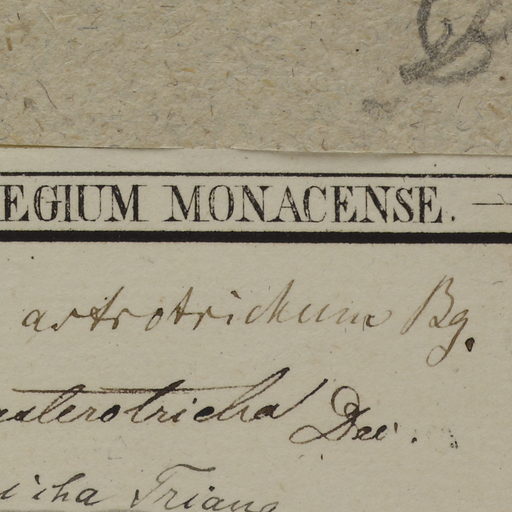 EGIUM MONACENSE.
astrotrichum Bg.
asterotricha Dec.
icha Triana